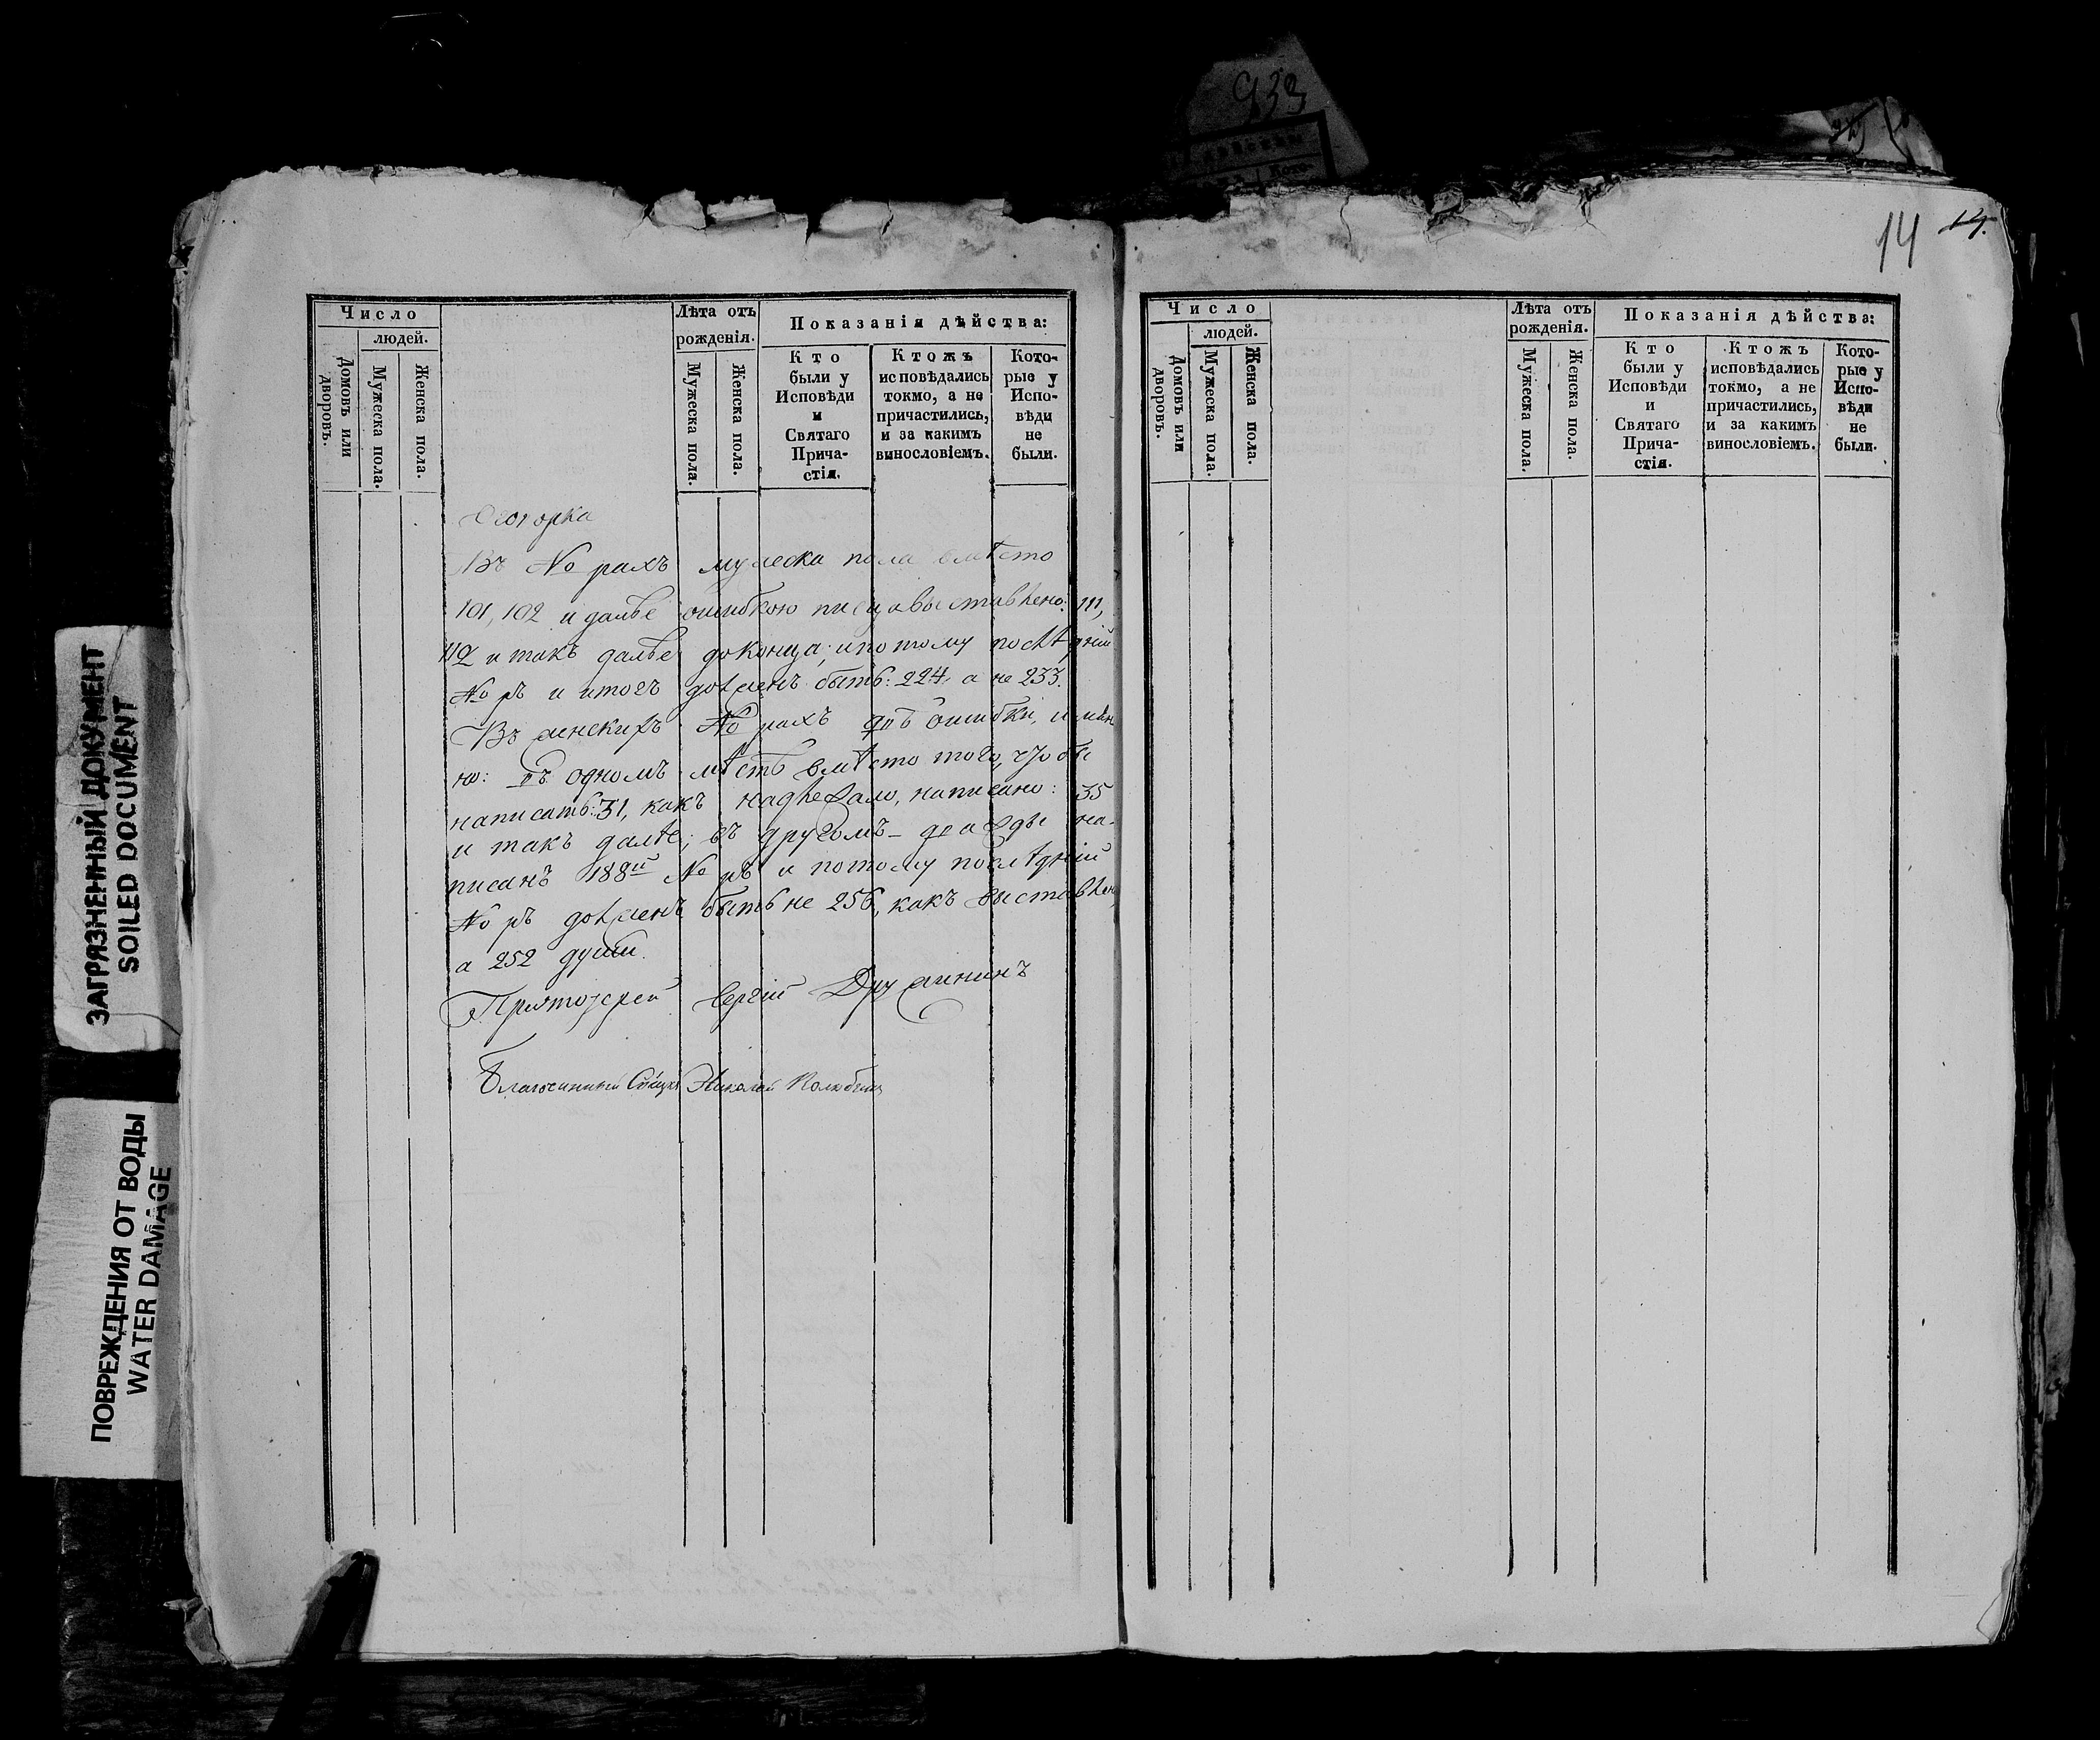 933
14 14.
ЗАГРЯЗНЕННЫЙ ДОКУМЕНТ
SOILED DOCUMENT
ПОВРЕЖДЕНИЯ ОТ ВОДЫ
WATER DAMAGE
Число
людей.
Домовъ или дворовъ.
Мужеска пола.
Женска пола.
Лѣта отъ рожденія.
Мужеска пола.
Женска пола.
Показанія дѣйства:
Кто
были у
Исповѣди
и
Святаго
Прича-
стія.
Ктожъ
исповѣдались
токмо, а не
причастились,
и за какимъ
винословіемъ.
Кото-
рые у
Испо-
вѣди
не
были.
Оговорка
Въ № рахъ мужеска пола вмѣсто
101, 102 и далѣе ошибкою писца выставлено: 111,
112 и такъ далѣе до конца; и потому послѣдній
№ ръ и итогъ долженъ быть: 224, а не 233.
Въ женскихъ № рахъ двѣ ошибки, имян
но: въ одномъ мѣстѣ вмѣсто того, чтобы
написать: 31, какъ надлежало, написано: 35
и такъ далѣе; въ другомъ – дважды на-
писанъ 188й № ръ и потому послѣдній
№ ръ долженъ быть не 256, какъ выставлено,
а 252 души.
Протоіерей Сергій Дружининъ
Благочинный Сщ҃нкъ Николай
Число
людей.
Домовъ или дворовъ.
Мужеска пола.
Женска пола.
Лѣта отъ
рожденія.
Мужеска пола.
Женска пола.
Показанія дѣйства:
Кто
были у
Исповѣди
и
Святаго
Прича-
стія.
Ктожъ
исповѣдались
токмо, а не
причастились,
и за какимъ
винословіемъ.
Кото-
рые у
Испо-
вѣди
не
были.